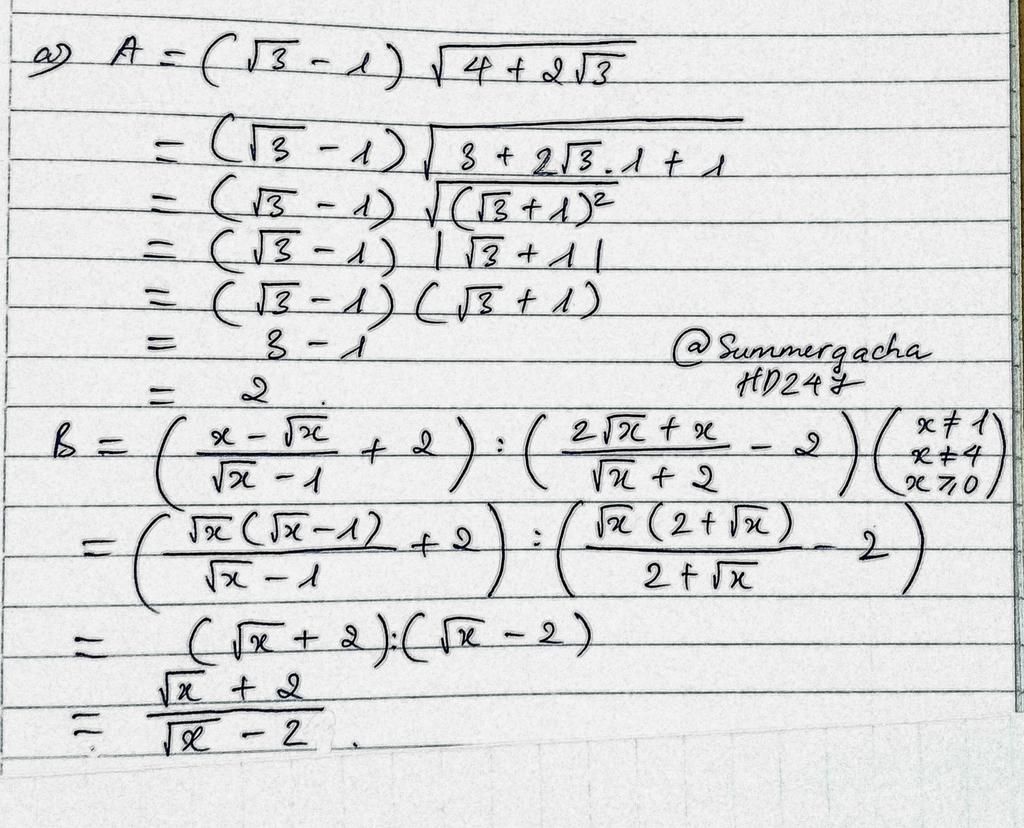 a) A = (√3 - 1) √(4 + 2√3)
= (√3 - 1) √(3 + 2√3.1 + 1)
= (√3 - 1) √((√3 + 1)²)
= (√3 - 1) |√3 + 1|
= (√3 - 1) (√3 + 1)
= 3 - 1
= 2.
@Summergacha
HD247
B = ((x - √x)/(√x - 1) + 2) : ((2√x + x)/(√x + 2) - 2) (x ≠ 1 x ≠ 4 x ⩾ 0)
= (√x(√x - 1)/(√x - 1) + 2) : (√x(2 + √x)/(2 + √x) - 2)
= (√x + 2):(√x - 2)
= (√x + 2)/(√x - 2).